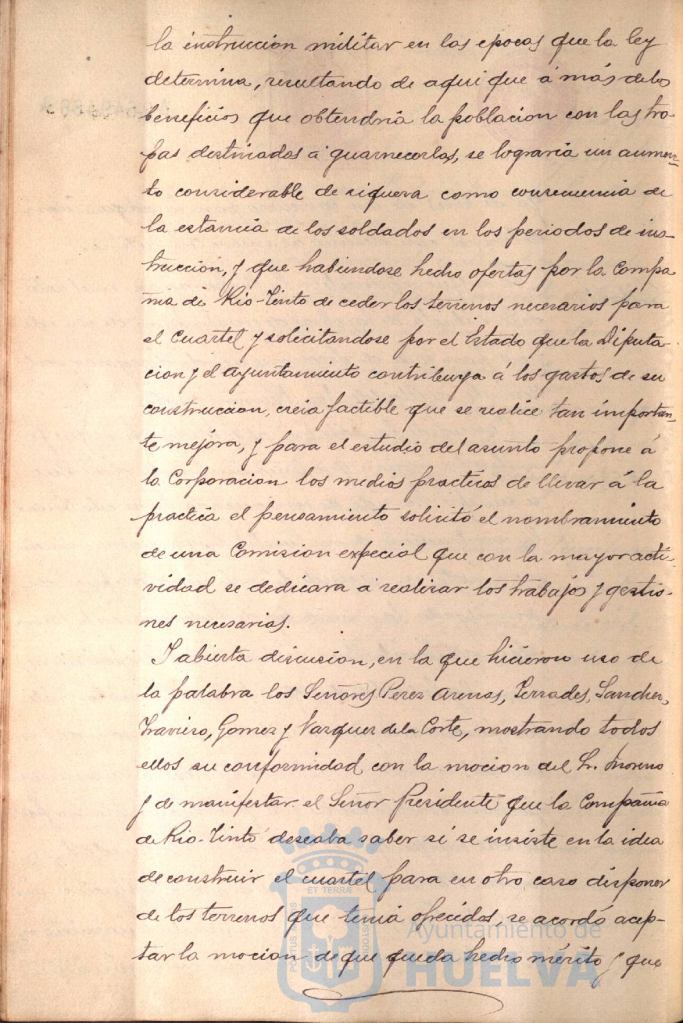 la instruccion militar en las epocas que la ley
determina, resultando de aqui que á más de los
beneficios que obtendria la poblacion con las tro-
pas destinadas á guarnecerlas, se lograria un aumen-
to considerable de riqueza como consecuencia de
la estancia de los soldados en los periodos de ins-
truccion, y que habiendose hecho ofertas por la Compa
ñia de Rio-Tinto de ceder los terrenos necesarios para
el Cuartel y solicitandose por el Estado que la Diputa-
cion y el Ayuntamiento contribuya á los gastos de su
construccion, creia factible que se realice tan importan-
te mejora, y para el estudio del asunto propone á
la Corporacion los medios practicos de llevar á la
practica el pensamiento solicitó el nombramiento
de una Comision especial que con la mayor acti-
vidad se dedicara á realizar los trabajos y gestio-
nes necesarias.
Y abierta discusion, en la que hicieron uso de
la palabra los Señores Perez Arenas, Terrades, Sanchez,
Travieso, Gomez y Vazquez de la Corte, mostrando todos
ellos su conformidad con la mocion del Sr. Moreno
y de manifestar el Señor Presidente que la Compañia
de Rio-Tinto deseaba saber si se insiste en la idea
de construir el cuartel para en otro caso disponer
de los terrenos que tenia ofrecidos, se acordó acep-
tar la mocion de que queda hecho mérito y que
ET TERRÆ
Ayuntamiento de
HUELVA